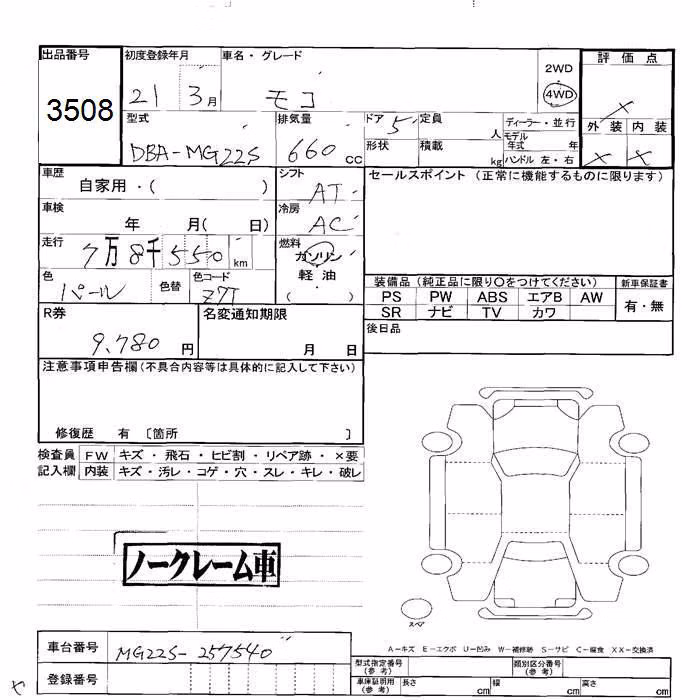 出品番号
3508
初度登録年月
21 3月
車名・グレード
モコ
2WD
4WD
評価点
×
外装 内装
× ×
型式
DBA-MG22S
排気量
660 cc
ドア 5
形状
定員 人
積載 kg
ディーラー・並行
モデル
年式 年
ハンドル 左・右
車歴
自家用・( )
シフト
AT
セールスポイント (正常に機能するものに限ります)
車検
年 月( 日)
冷房
AC
走行
7万8千550km
燃料
ガソリン
軽油
( )
色
パール
色替
色コード
Z7T
装備品 (純正品に限り○をつけてください)
PS PW ABS エアB AW
SR ナビ TV カワ
新車保証書
有・無
R券
9,780 円
名変通知期限
月 日
後日品
注意事項申告欄(不具合内容等は具体的に記入して下さい)
修復歴 有 〔箇所 〕
検査員 FW キズ・飛石・ヒビ割・リペア跡・×要
記入欄 内装 キズ・汚レ・コゲ・穴・スレ・キレ・破レ
ノークレーム車
スペア
A-キズ E-エクボ U-凹み W-補修跡 S-サビ C-腐食 XX-交換済
車台番号
MG22S-257540
登録番号
型式指定番号
(参考)
類別区分番号
(参考)
車庫証明用
(参考)
長さ cm 幅 cm 高さ cm
や